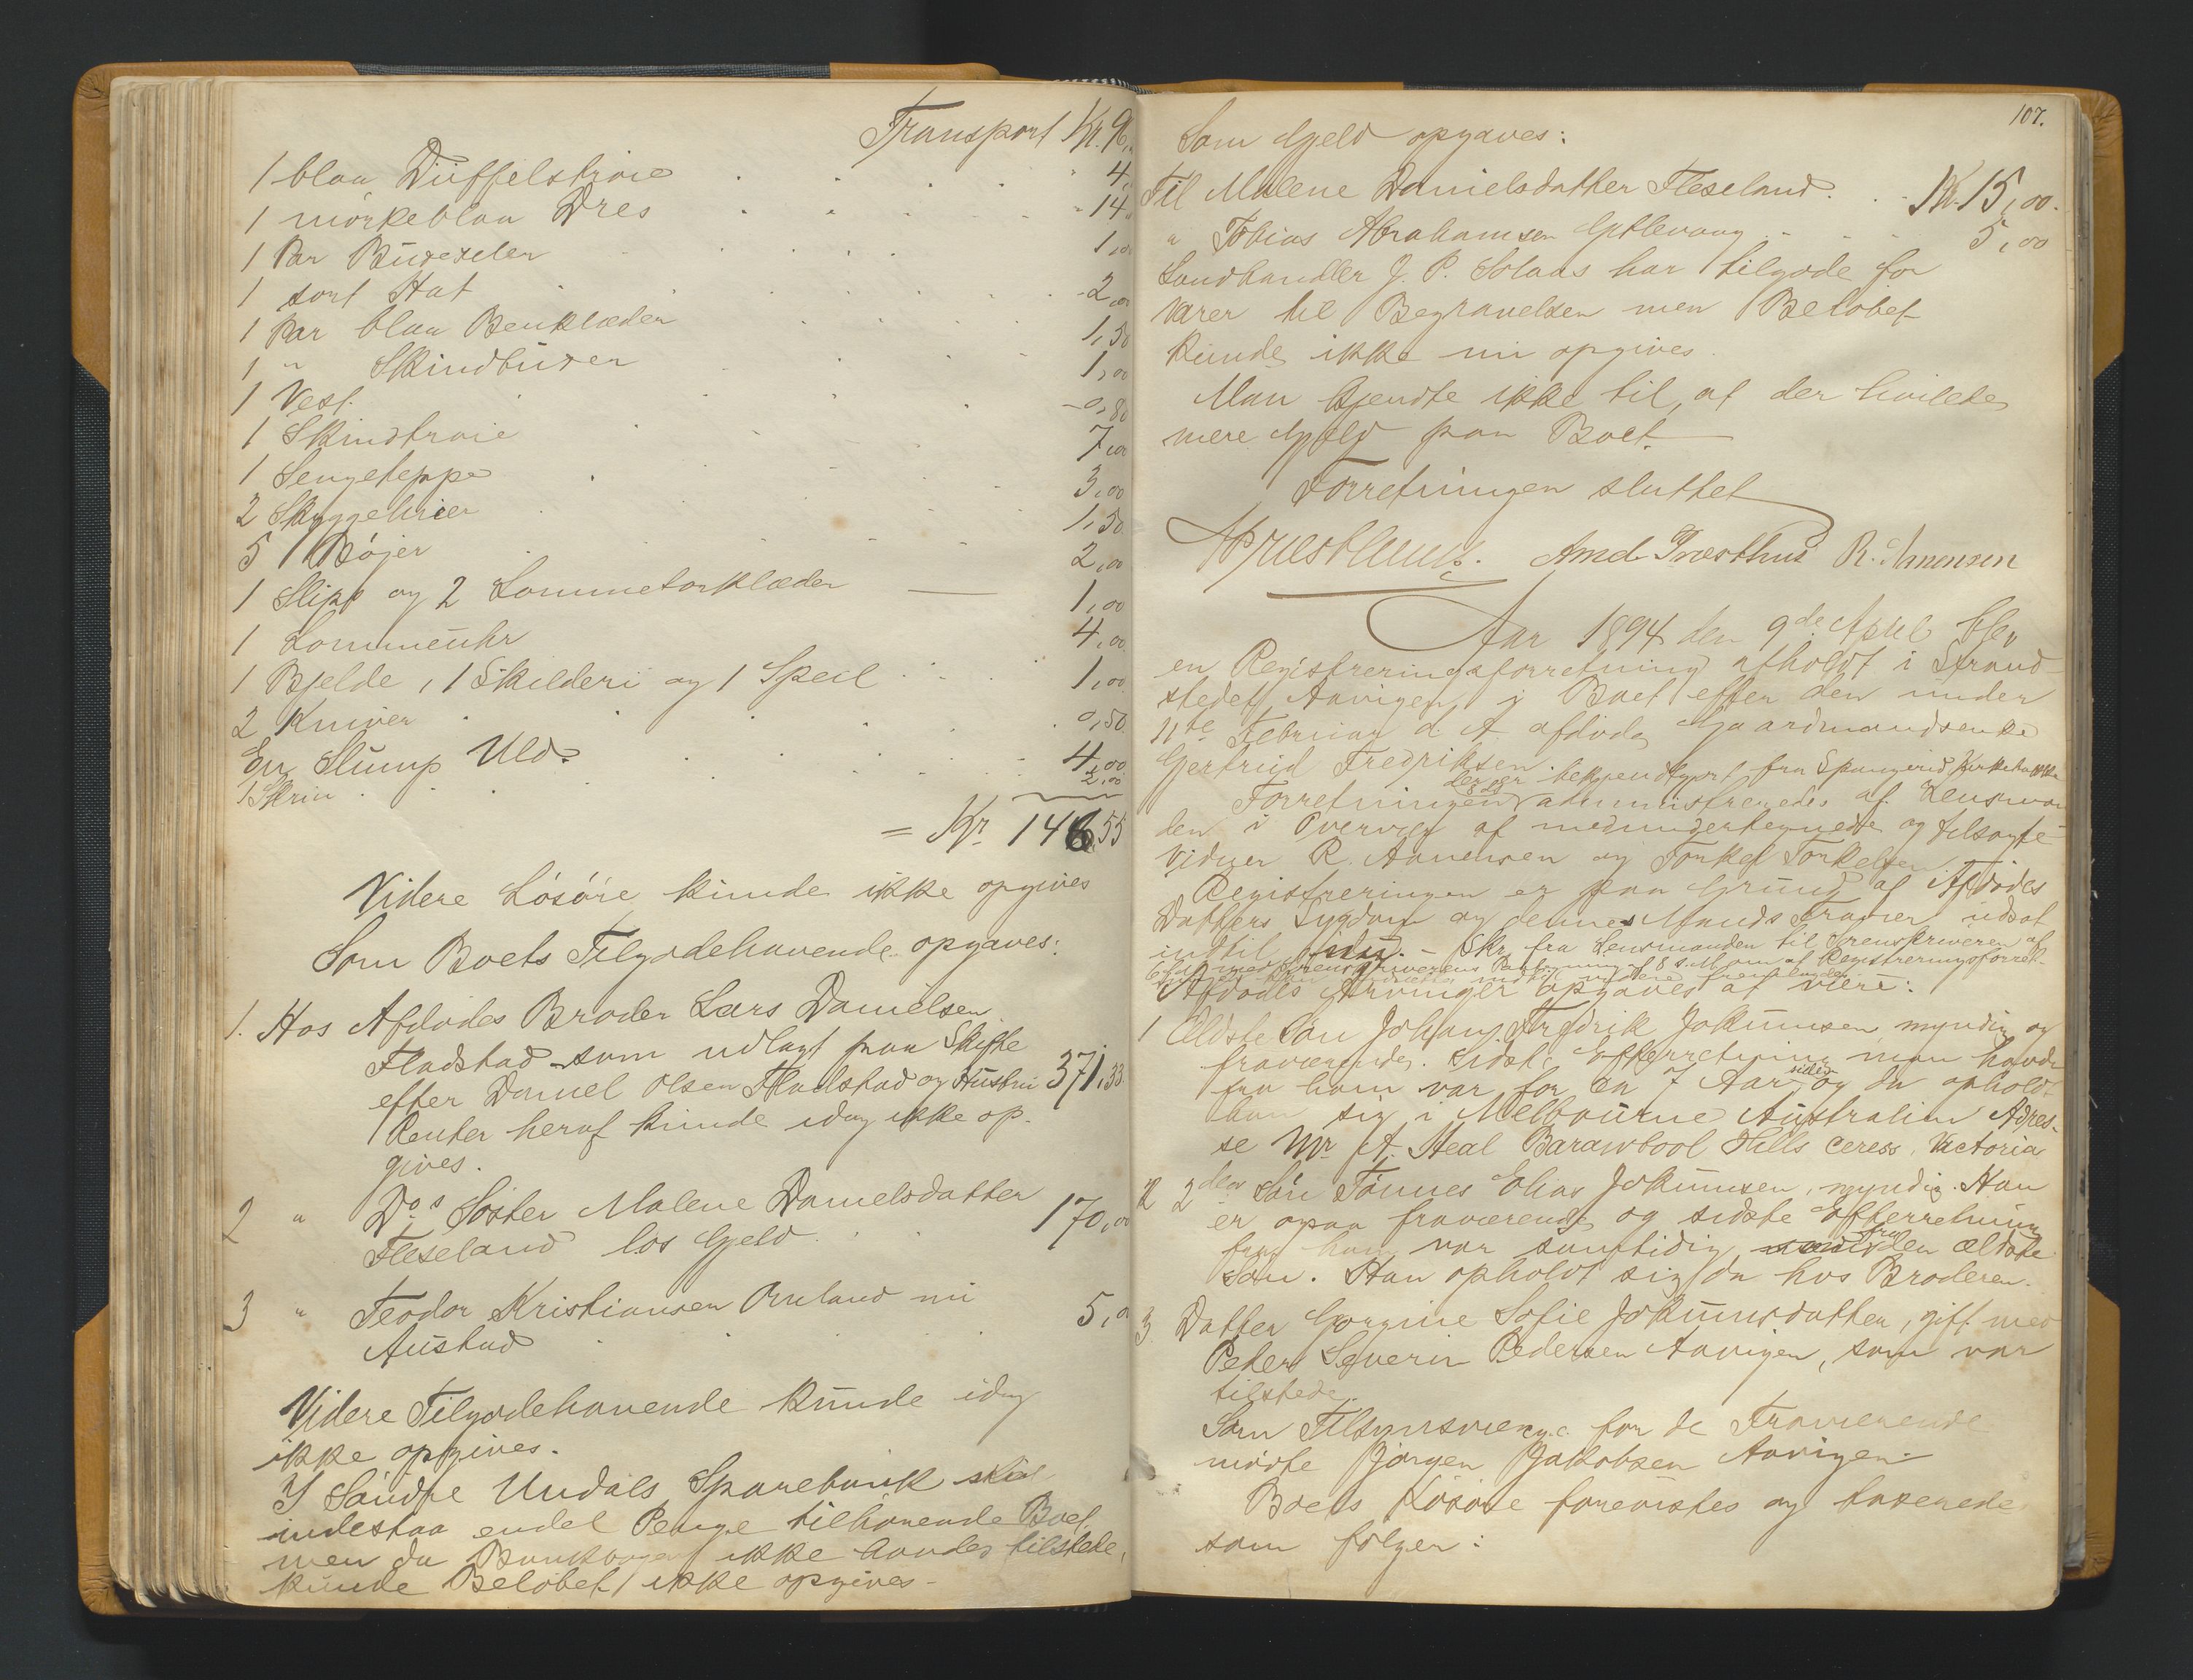 Transport Kr. 96,
1 blaa Düffelstrøie 4,
1 mörkeblaa Dres 14
1 Par Büxeseler 1,00
1 sort Hat 2,00
1 Par blaa Benklæder 1,50
1 " Skindbüxer 1,00
1 Vest 0,80
1 Skindtrøie 7,00
1 Sengeteppe 3,00
2 Skyggehüer 1,50
5 Bøjer 2,00
1 Slips og 2 Lommetørklæder 1,00
1 Lommeühr 4,00
1 Bjelde, 1 Skilderi og 1 Speil 1,00
2 Kniver 0,50
En Slump Uld 4,00
1 Skrin 2,00
= Kr 146,55
Videre Lösöre künde ikke opgives
Som Boets Tilgodehavende opgaves:
1. Hos Afdødes Broder Lars Danielsen
Fladstad som udlagt paa Skifte
efter Daniel Olsen Fladstad og Hüstrü 371,33
Renter heraf künde idag ikke op-
gives.
2 " Do s Søster Malene Danielsdatter
Fleseland løs Gjeld 170,00
3 " Teodor Kristiansen Ouland nü
Aüstad 5,00
Videre Tilgodehavende künde idag
ikke opgives.
I Söndre Undals Sparebank skal
indestaa endel Penge tilhørende Boet,
men da Bankbogen ikke havdes tilstede,
künde Beløbet ikke opgives -
107.
Som Gjeld opgaves:
Til Malene Danielsdatter Fleseland Kr 15,00
" Tobias Abrahamsen 5,00
Landhandler J. P. Solaas har tilgode for
Varer til Begravelsen men Beløbet
künde ikke nü opgives
Man kjendte ikke til, at der hvilede
mere Gjeld paa Boet.
Forretningen sluttet
Amd Præsthus R. Aanensen
Aar 1894 den 9de April blev
en Registreringsforretning afholdt i Strand-
stedet Aavigen i Boet efter den under
11te Februar d. A. afdøde Gaardmandsenke
Gertrüd Fredriksen.
der er bekjendtgjort fra Spangereid Kirkebakke
Forretningen administreredes af Lensman-
den i Overvær af medundertegnede og tilsagte
Vidner R. Aanensen og Torkel Torkelsen
Registreringen er paa Grund af Afdødes
Datters Sygdom og dennes Mands Fravær udsat
indtil idag. - Skr. fra Lensmanden til Sorenskriveren af
Afdødes Arvinger opgaves at være:
1 Ældste Søn Johan Fredrik Jokümsen, myndig og
fraværende. Sidste Efterretning man havde
fra ham var for en 7 Aar siden og da opholdt
han sig i Melbourne Australien Adres-
se Mr A. Heal Barawbool Hills Ceress, Victoria
2 2den Søn Tønnes Elias Jokümsen, myndig. Han
er ogsaa fraværende og sidste Efterretning
fra ham var samtidig fra den ældste
Søn. Han opholdt sig da hos Broderen.
3 Datter Gorgine Sofie Jokümsdatter, gift med
Peder Severin Pedersen Aavigen, som var
tilstede.
Som Tilsynsværge for de Fraværende
mødte Jörgen Jakobsen Aavigen
Boets Lösöre forevistes og taxerede
som følger: